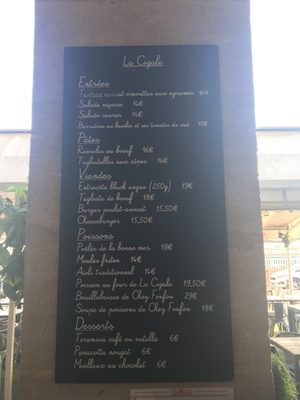 La Cigale
Entrées
et crevettes aux agrumes 16€
Salade niçoise 14€
Salade caesar 14€
Burratina au basilic et ses tomates du sud 15€
Pâtes
Raviolis au boeuf 16€
Tagliatelles aux cèpes 14€
Viandes
Entrecôte black angus (250g) 19€
Tagliata de boeuf 18€
Burger poulet-avocat 15,50€
Cheeseburger 15,50€
Poissons
Poêlée de la bonne mer 18€
Moules frites 14€
Aïoli traditionnel 14€
Poisson au four de La Cigale 19,50€
Bouillabaisse de Chez Fonfon 29€
Soupe de poissons de Chez Fonfon 18€
Desserts
Tiramisu café ou nutella 6€
Panacotta nougat 6€
Moëlleux au chocolat 6€